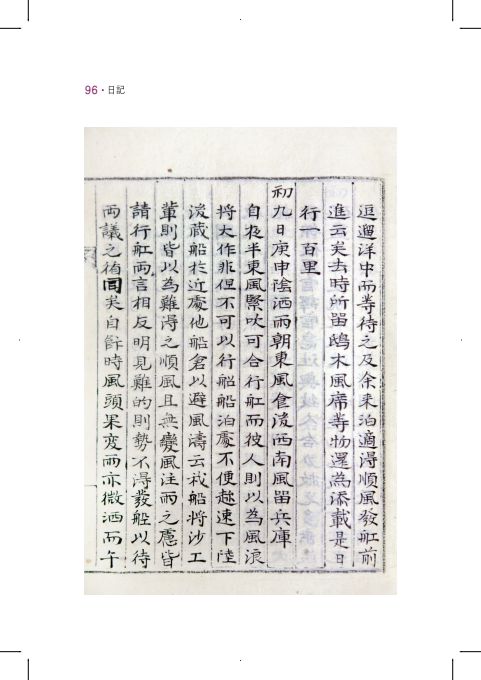 96 · 日記
逗遛洋中而等待之及余来泊適淂順風發舡前
進云矣去時所留鴟木風席等物還為添載是日
行一百里
初九日庚申陰洒雨朝東風食後西南風留兵庫
自夜半東風緊吹可合行舡而彼人則以為風浪
将大作非但不可以行船船泊處不便趂速下陸
後蔵船於近處他船倉以避風濤云我船将沙工
軰則皆以為難淂之順風且無變風注雨之慮皆
請行舡両言相反明見難的則勢不淂發船以待
両議之帰同矣自餔時風頭果変雨亦微洒而午